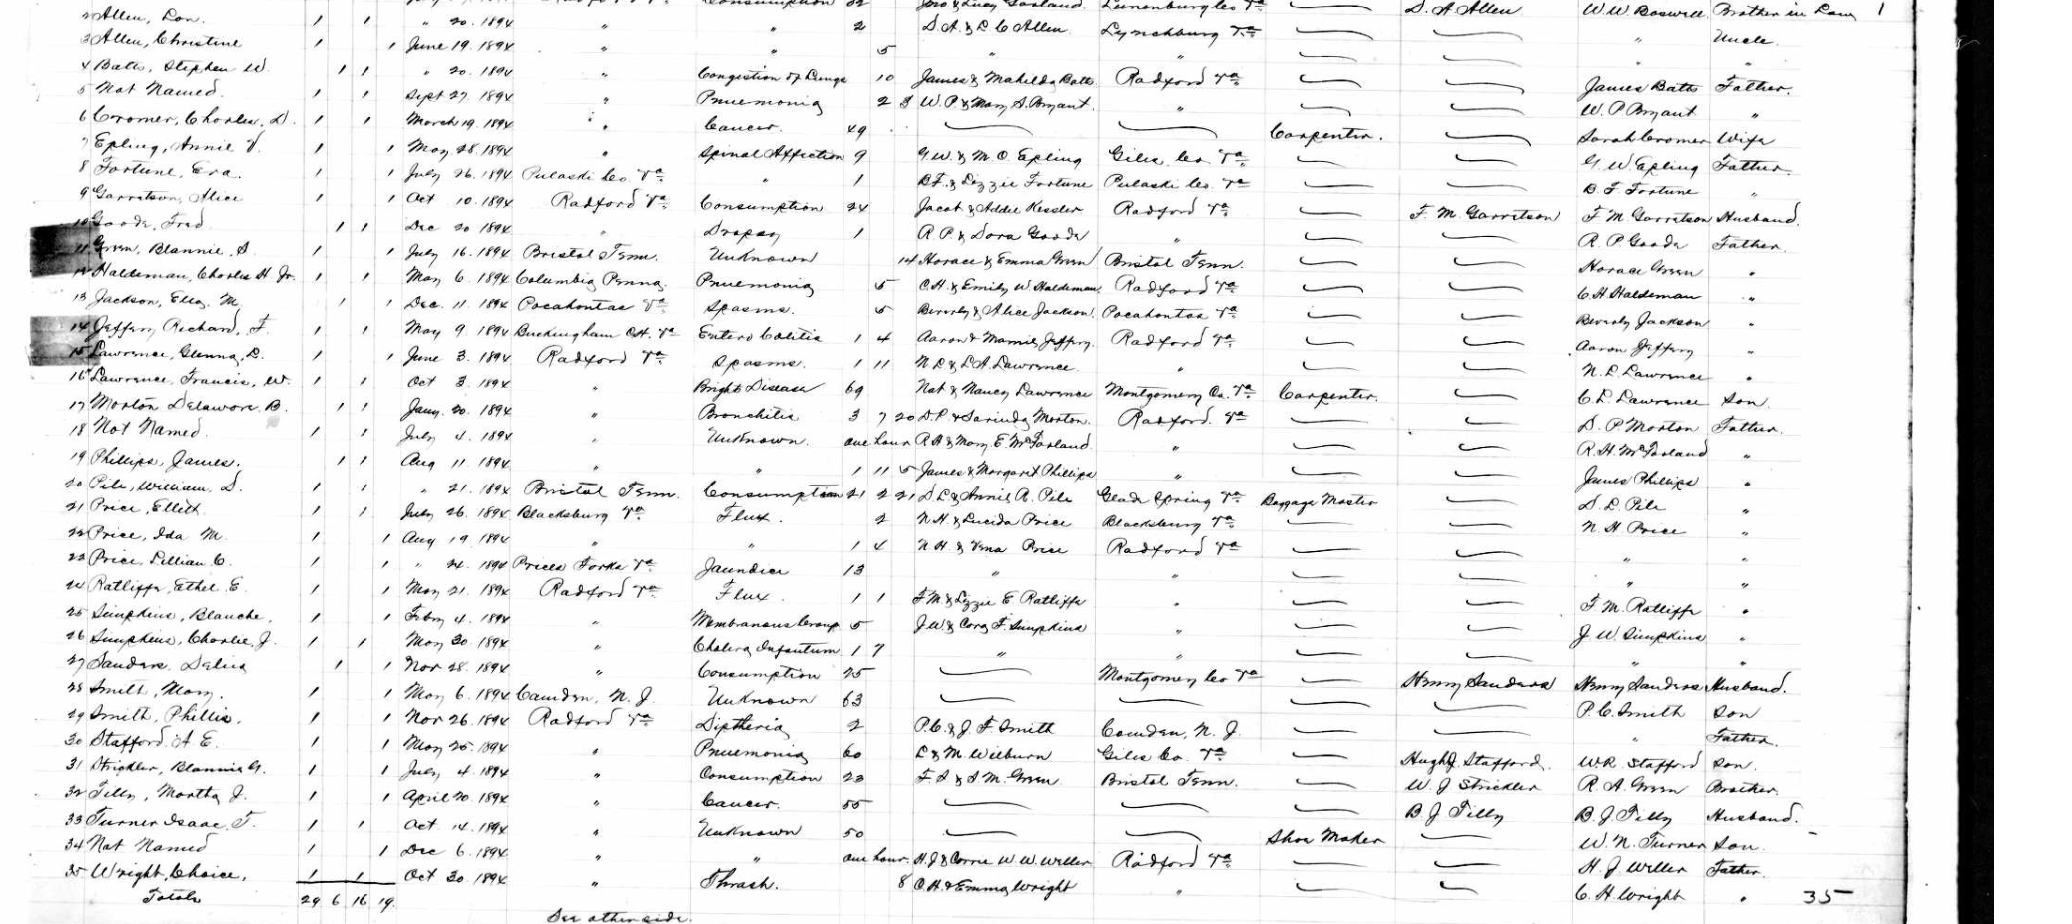 Consumption 32 Jno & Lucy Garland Lunenburg Co Va D. A. Allen W. W. Boswell Brother in Law 1
2 Allen, Lon. 1 1 " 20. 1894 " " 2 D. A. & L. C. Allen Lynchburg Va " Uncle.
3 Allen, Christine 1 1 June 19. 1894 " " 5 " " " "
4 Batts, Stephen W. 1 1 " 20. 1894 " Congestion of Lungs 10 James & Mahilda Batts. Radford Va James Batts Father.
5 Not Named. 1 1 Sept 27. 1894 " Pnuemonia 2 3 W. P. & Mary S. Bryant. " W. P. Bryant "
6 Cromer, Charles, D. 1 1 March 19. 1894 " Cancer. 49 Carpenter. Sarah Cromer Wife
7 Epling, Annie V. 1 1 May 28. 1894 " Spinal Affection 9 G. W. & M. O. Epling Giles Co Va G. W. Epling Father.
8 Fortune, Eva. 1 1 July 26. 1894 Pulaski Co. Va " 1 B. F. & Lizzie Fortune Pulaski Co. Va B. F. Fortune "
9 Garretson, Alice 1 1 Oct 10. 1894 Radford Va Consumption 24 Jacob & Addie Kessler Radford Va F. M. Garretson F. M. Garretson Husband.
10 Goode, Fred 1 1 Dec 20 1894 " Dropsy 1 R. P. & Dora Goode " R. P. Goode Father.
11 Green, Blannie, S. 1 1 July 16. 1894 Bristol Tenn. Unknown 14 Horace & Emma Green Bristol Tenn. Horace Green "
12 Haldeman, Charles H Jr. 1 1 May 6. 1894 Columbia Penna. Pnuemonia 5 C. H. & Emily W Haldeman. Radford Va C. H. Haldeman "
13 Jackson, Eliz. M. 1 1 Dec. 11. 1894 Pocahontas Va Spasms. 5 Beverly & Alice Jackson. Pocahontas Va Beverly Jackson "
14 Jeffery Richard, F. 1 1 May 9 1894 Buckingham C.H. Va Entero Colitis 1 4 Aaron & Mamie Jeffery. Radford Va Aaron Jeffery "
15 Lawrence, Glenna, L. 1 1 June 3. 1894 Radford Va Spasms. 1 11 N. L. & L. A. Lawrence. " N. L. Lawrence "
16 Lawrence, Francis, W. 1 1 Oct 3. 1894 " Bright Disease 69 Nat & Nancy Lawrence Montgomery Co. Va Carpenter. C. L. Lawrence Son.
17 Morton Delaware, B. 1 1 Jany. 20. 1894 " Bronchitis 3 7 20 D. P. & Sarinda Morton. Radford. Va D. P. Morton Father.
18 Not Named. 1 1 July 4. 1894 " Unknown. one hour R. H. & Mary E. McFarland. " R. H. McFarland "
19 Phillips, James. 1 1 Aug 11. 1894 " " 1 11 5 James & Margaret Phillips " James Phillips "
20 Pile, William, D. 1 1 " 21. 1894 Bristol Tenn. Consumption 21 2 21 D. L. & Annie A. Pile Glade Spring Va Baggage Master D. L. Pile "
21 Price, Ellett. 1 1 July 26. 1894 Blacksburg Va Flux. 2 N. H. & Lucida Price Blacksburg Va N. H. Price "
22 Price, Ida M. 1 1 Aug 19. 1894 " " 1 4 N. H. & Vena Price Radford Va " "
23 Price, Lillian C. 1 1 " 24. 1894 Prices Forks Va Jaundice 13 " " " "
24 Ratliffe, Ethel E. 1 1 May 21. 1894 Radford Va Flux. 1 1 F. M. & Lizzie E Ratliffe " F. M. Ratliffe "
25 Simpkins, Blanche, 1 1 Febry 4. 1894 " Membranous Croup 5 J. W. & Cora F. Simpkins " J. W. Simpkins "
26 Simpkins, Charlie, J. 1 1 May 30. 1894 " Cholera Infantum 1 7 " " " "
27 Sanders, Delia 1 1 Nov 28. 1894 " Consumption 25 Montgomery Co Va Henry Sanders Henry Sanders Husband.
28 Smith, Mary. 1 1 May 6. 1894 Camden, N. J. Unknown 63 P. C. Smith Son
29 Smith, Phillis. 1 1 Nov 26. 1894 Radford Va Diptheria 2 P. C. & J. F. Smith Camden, N. J. " Father.
30 Stafford. A. E. 1 1 May 25. 1894 " Pnuemonia 60 L. & M. Wilburn Giles Co. Va Hugh J. Stafford. W. R. Stafford Son.
31 Strickler, Blannie G. 1 1 July 4. 1894 " Consumption 23 F. S. & S. M. Green. Bristol Tenn. W. J. Strickler R. A. Green Brother.
32 Tilly, Martha J. 1 1 April 20. 1894 " Cancer. 55 B. J. Tilly B. J. Tilly Husband.
33 Turner Isaac, T. 1 1 Oct 14. 1894 " Unknown 50 Shoe Maker W. N. Turner Son.
34 Not Named 1 1 Dec 6. 1894 " " one hour. H. J. & Corrie W. W. Weller Radford Va H. J. Weller Father.
35 Wright, Choice, 1 1 Oct 30. 1894 " Thrash. 8 C. H. & Emma Wright " C. H. Wright "
Totals 29 6 16 19. 35
See other side.